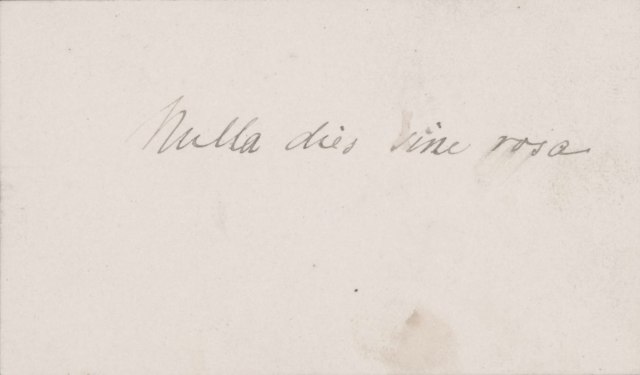 Nulla dies sine rosa